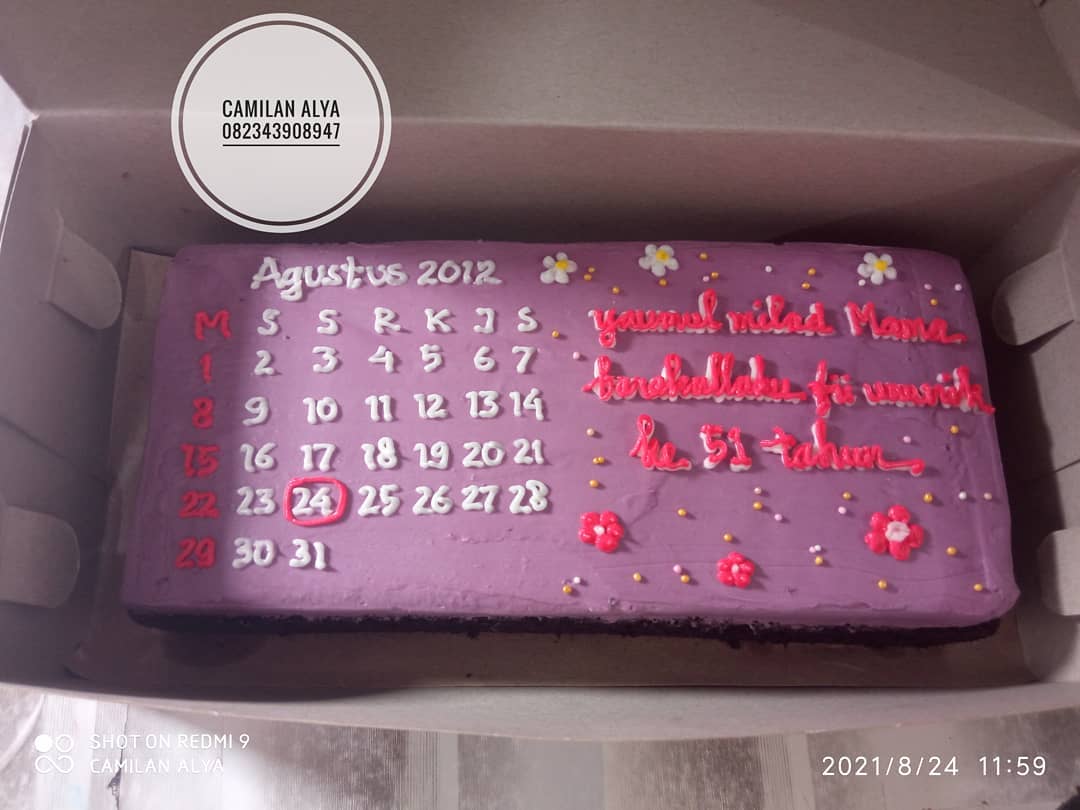 CAMILAN ALYA
082343908947
Agustus 2012
M S S R K J S
1 2 3 4 5 6 7
8 9 10 11 12 13 14
15 16 17 18 19 20 21
22 23 24 25 26 27 28
29 30 31
yaumul milad Mama
barakallahu fii umrik
ke 51 tahun
SHOT ON REDMI 9
CAMILAN ALYA
2021/8/24 11:59